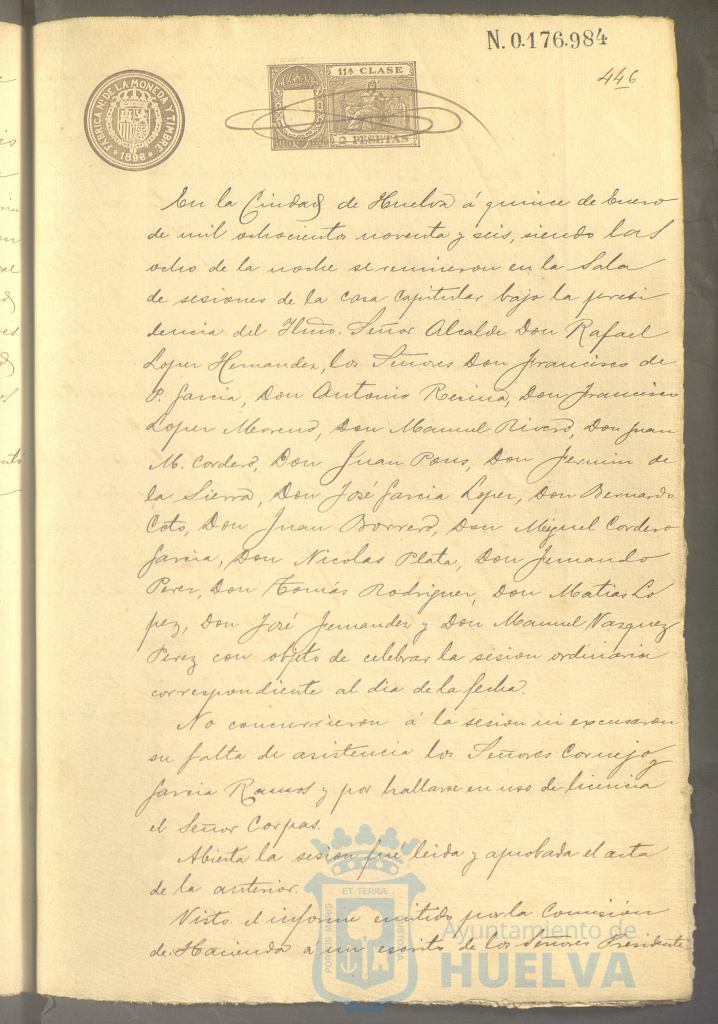 N. 0.176.984
446
FABRICA Nal. DE LA MONEDA Y TIMBRE
1896
11ª CLASE
2 PESETAS
En la Ciudad de Huelva á quince de Enero
de mil ochocientos noventa y seis, siendo las
ocho de la noche se reunieron en la Sala
de sesiones de la casa capitular bajo la presi
dencia del Iltmo. Señor Alcalde Don Rafael
Lopez Hernandez, los Señores Don Francisco de
P. Garcia, Don Antonio Resina, Don Francisco
Lopez Moreno, Don Manuel Rivero, Don Juan
M. Cordero, Don Juan Pons, Don Fermin de
la Sierra, Don José Garcia Lopez, Don Bernardo
Coto, Don Juan Borrero, Don Miguel Cordero
Garcia, Don Nicolas Plata, Don Fernando
Perez, Don Tomás Rodriguez, Don Matias Lo
pez, Don José Fernandez y Don Manuel Vazquez
Perez con objeto de celebrar la sesion ordinaria
correspondiente al dia de la fecha.
No concurrieron á la sesion ni excusaron
su falta de asistencia los Señores Cornejo y
Garcia Ramos y por hallarse en uso de licencia
el Señor Corpas.
Abierta la sesion fué leida y aprobada el acta
de la anterior.
Visto el informe emitido por la Comision
de Hacienda á un escrito de los Señores Presidente
PORTUS MARIS ET TERRAE CUSTODIA
Ayuntamiento de
HUELVA